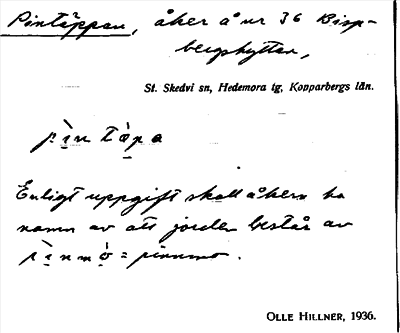 Pintäppan, åker å nr 36 Bisp-
bergshyttan,
St. Skedvi sn, Hedemora tg, Kopparbergs län.
pìn tàpa
Enligt uppgift skall åkern ha
namn av att jorden består av
pìnmó = pinnmo.
OLLE HILLNER, 1936.